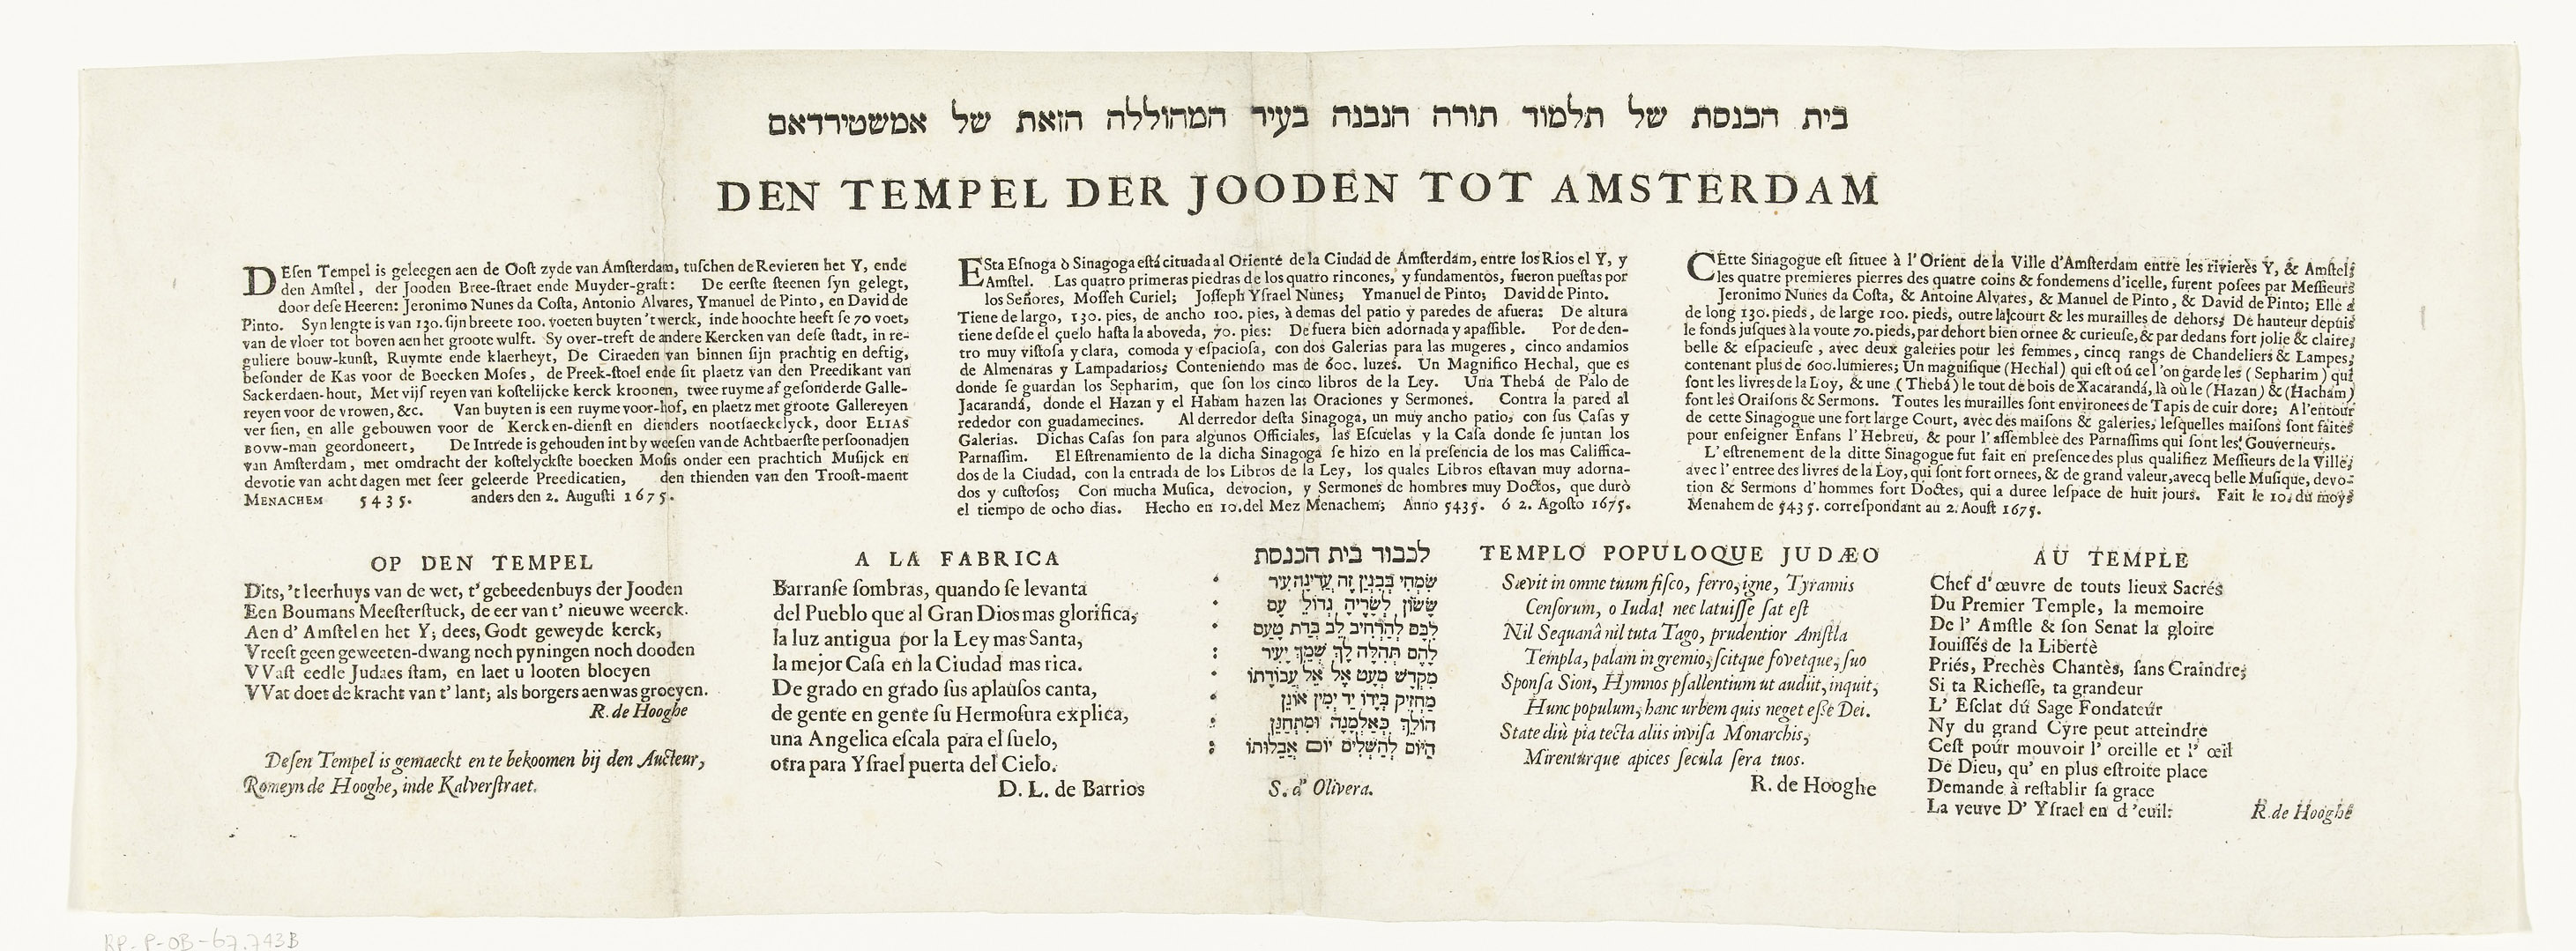 בית הכנסת של תלמוד תורה הנבנה בעיר המהוללה הזאת של אמשטירדאם
DEN TEMPEL DER JOODEN TOT AMSTERDAM
DEſen Tempel is geleegen aen de Ooſt zyde van Amſterdam, tuſchen de Revieren het Y, ende
den Amſtel, der Jooden Bree-ſtraet ende Muyder-graft: De eerſte ſteenen ſyn gelegt,
door deſe Heeren: Jeronimo Nunes da Coſta, Antonio Alvares, Ymanuel de Pinto, en David de
Pinto. Syn lengte is van 130. ſijn breete 100. voeten buyten 't werck, inde hoochte heeft ſe 70 voet,
van de vloer tot boven aen het groote wulft. Sy over-treft de andere Kercken van deſe ſtadt, in re-
guliere bouw-kunſt, Ruymte ende klaerheyt, De Ciraeden van binnen ſijn prachtig en deftig,
beſonder de Kas voor de Boecken Moſes, de Preek-ſtoel ende ſit plaetz van den Preedikant van
Sackerdaen-hout, Met vijf reyen van koſtelijcke kerck kroonen, twee ruyme af geſonderde Galle-
reyen voor de vrowen, &c. Van buyten is een ruyme voor-hof, en plaetz met groote Gallereyen
ver ſien, en alle gebouwen voor de Kercken-dienſt en dienders nootſaeckelyck, door ELIAS
BOVW-man geordoneert, De Intrede is gehouden int by weeſen van de Achtbaerſte perſoonadjen
van Amſterdam, met omdracht der koſtelyckſte boecken Moſis onder een prachtich Muſijck en
devotie van acht dagen met ſeer geleerde Preedicatien, den thienden van den Trooſt-maent
MENACHEM 5435. anders den 2. Auguſti 1675.
ESta Eſnoga ò Sinagoga eſtá cituada al Orienté de la Ciudad de Amſterdam, entre los Rios el Y, y
Amſtel. Las quatro primeras piedras de los quatro rincones, y fundamentos, fueron pueſtas por
los Señores, Moſſeh Curiel; Joſſeph Yſrael Nunes; Ymanuel de Pinto; David de Pinto.
Tiene de largo, 130. pies, de ancho 100. pies, à demas del patio y paredes de afuera: De altura
tiene deſde el çuelo haſta la aboveda, 70. pies: De fuera bien adornada y apaſſible. Por de den-
tro muy viſtoſa y clara, comoda y eſpacioſa, con dos Galerias para las mugeres, cinco andamios
de Almenaras y Lampadarios; Conteniendo mas de 600. luzes. Un Magnifico Hechal, que es
donde ſe guardan los Sepharim, que ſon los cinco libros de la Ley. Una Thebá de Palo de
Jacarandá, donde el Hazan y el Haham hazen las Oraciones y Sermones. Contra la pared al
rededor con guadamecines. Al derredor deſta Sinagoga, un muy ancho patio, con ſus Caſas y
Galerias. Dichas Caſas ſon para algunos Officiales, las Eſcuelas y la Caſa donde ſe juntan los
Parnaſſim. El Eſtrenamiento de la dicha Sinagoga ſe hizo en la preſencia de los mas Califfica-
dos de la Ciudad, con la entrada de los Libros de la Ley, los quales Libros eſtavan muy adorna-
dos y cuſtoſos; Con mucha Muſica, devocion, y Sermones de hombres muy Doctos, que durò
el tiempo de ocho dias. Hecho en 10. del Mez Menachem; Anno 5435. ó 2. Agoſto 1675.
CEtte Sinagogue eſt ſituee à l'Orient de la Ville d'Amſterdam entre les rivierès Y, & Amſtel;
les quatre premieres pierres des quatre coins & fondemens d'icelle, furent poſees par Meſſieurs
Jeronimo Nunes da Coſta, & Antoine Alvares, & Manuel de Pinto, & David de Pinto; Elle a
de long 130. pieds, de large 100. pieds, outre la court & les murailles de dehors; De hauteur depuis
le fonds juſques à la voute 70. pieds, par dehort bien ornee & curieuſe, & par dedans fort jolie & claire;
belle & eſpacieuſe, avec deux galeries pour les femmes, cincq rangs de Chandeliers & Lampes,
contenant plus de 600. lumieres; Un magnifique (Hechal) qui eſt oú cel'on garde les (Sepharim) qui
ſont les livres de la Loy, & une (Thebá) le tout de bois de Xacarandá, là où le (Hazan) & (Hacham)
font les Oraiſons & Sermons. Toutes les murailles ſont environees de Tapis de cuir dore; A l'entour
de cette Sinagogue une fort large Court, avec des maiſons & galeries, leſquelles maiſons ſont faites
pour enſeigner Enfans l'Hebreu, & pour l'aſſemblee des Parnaſſims qui ſont les Gouverneurs.
L'eſtrenement de la ditte Sinagogue fut fait en preſence des plus qualifiez Meſſieurs de la Ville,
avec l'entree des livres de la Loy, qui ſont fort ornees, & de grand valeur, avecq belle Muſique, devo-
tion & Sermons d'hommes fort Doctes, qui a duree leſpace de huit jours. Fait le 10. du moys
Menahem de 5435. correſpondant au 2. Aouſt 1675.
OP DEN TEMPEL
Dits, 't leerhuys van de wet, t' gebeedenbuys der Jooden
Een Boumans Meeſterſtuck, de eer van t' nieuwe weerck.
Aen d' Amſtel en het Y; dees, Godt geweyde kerck,
Vreeſt geen geweeten-dwang noch pyningen noch dooden
VVaſt eedle Judaes ſtam, en laet u looten bloeyen
VVat doet de kracht van t' lant; als borgers aenwas groeyen.
R. de Hooghe
Deſen Tempel is gemaeckt en te bekoomen bij den Aucteur,
Romeyn de Hooghe, inde Kalverſtraet.
A LA FABRICA
Barranſe ſombras, quando ſe levanta
del Pueblo que al Gran Dios mas glorifica,
la luz antigua por la Ley mas Santa,
la mejor Caſa en la Ciudad mas rica.
De grado en grado ſus aplauſos canta,
de gente en gente ſu Hermoſura explica,
una Angelica eſcala para el ſuelo,
otra para Yſrael puerta del Cielo.
D. L. de Barrios
לכבוד בית הכנסת
שִׂמְחִי בְּבִנְיַן זֶה עֲדִינָה עִיר
שָׂשׂוֹן לְשָׂרֶיהָ גְּדוֹלֵי עָם
לִבָּם לְהַרְחִיב לֵב בְּדַת טָעַם
לָהֶם תְּהִלָּה לָךְ שְׁמֵךְ יָעִיר
מִקְדָּשׁ מְעַט אָל אֵל עֲבוֹדָתוֹ
מַחֲזִיק בְּיָדוֹ יַד יְמִין אוֹנֵן
הוֹלֵךְ כְּאַלְמָנָה וּמִתְחַנֵּן
הַיּוֹם לְהַשְׁלִים יוֹם אֲבֵלוּתוֹ
S. d' Olivera.
TEMPLO POPULOQUE JUDÆO
Sævit in omne tuum fiſco, ferro, igne, Tyrannis
Cenſorum, o Iuda! nec latuiſſe ſat eſt
Nil Sequanâ nil tuta Tago, prudentior Amſtla
Templa, palam in gremio, ſcitque fovetque, ſuo
Sponſa Sion, Hymnos pſallentium ut audiit, inquit,
Hunc populum, hanc urbem quis neget eſſe Dei.
State diù pia tecta aliis inviſa Monarchis,
Mirenturque apices ſecula ſera tuos.
R. de Hooghe
AU TEMPLE
Chef d'œuvre de touts lieux Sacrés
Du Premier Temple, la memoire
De l' Amſtle & ſon Senat la gloire
Iouiſſés de la Libertè
Priés, Prechès Chantès, ſans Craindre;
Si ta Richeſſe, ta grandeur
L' Eſclat dú Sage Fondateur
Ny du grand Cyre peut atteindre
Ceſt poúr mouvoir l' oreille et l' œil
De Dieu, qu' en plus eſtroite place
Demande à reſtablir ſa grace
La veuve D' Yſrael en d'euil:
R. de Hooghe
RP-P-OB-67.743B